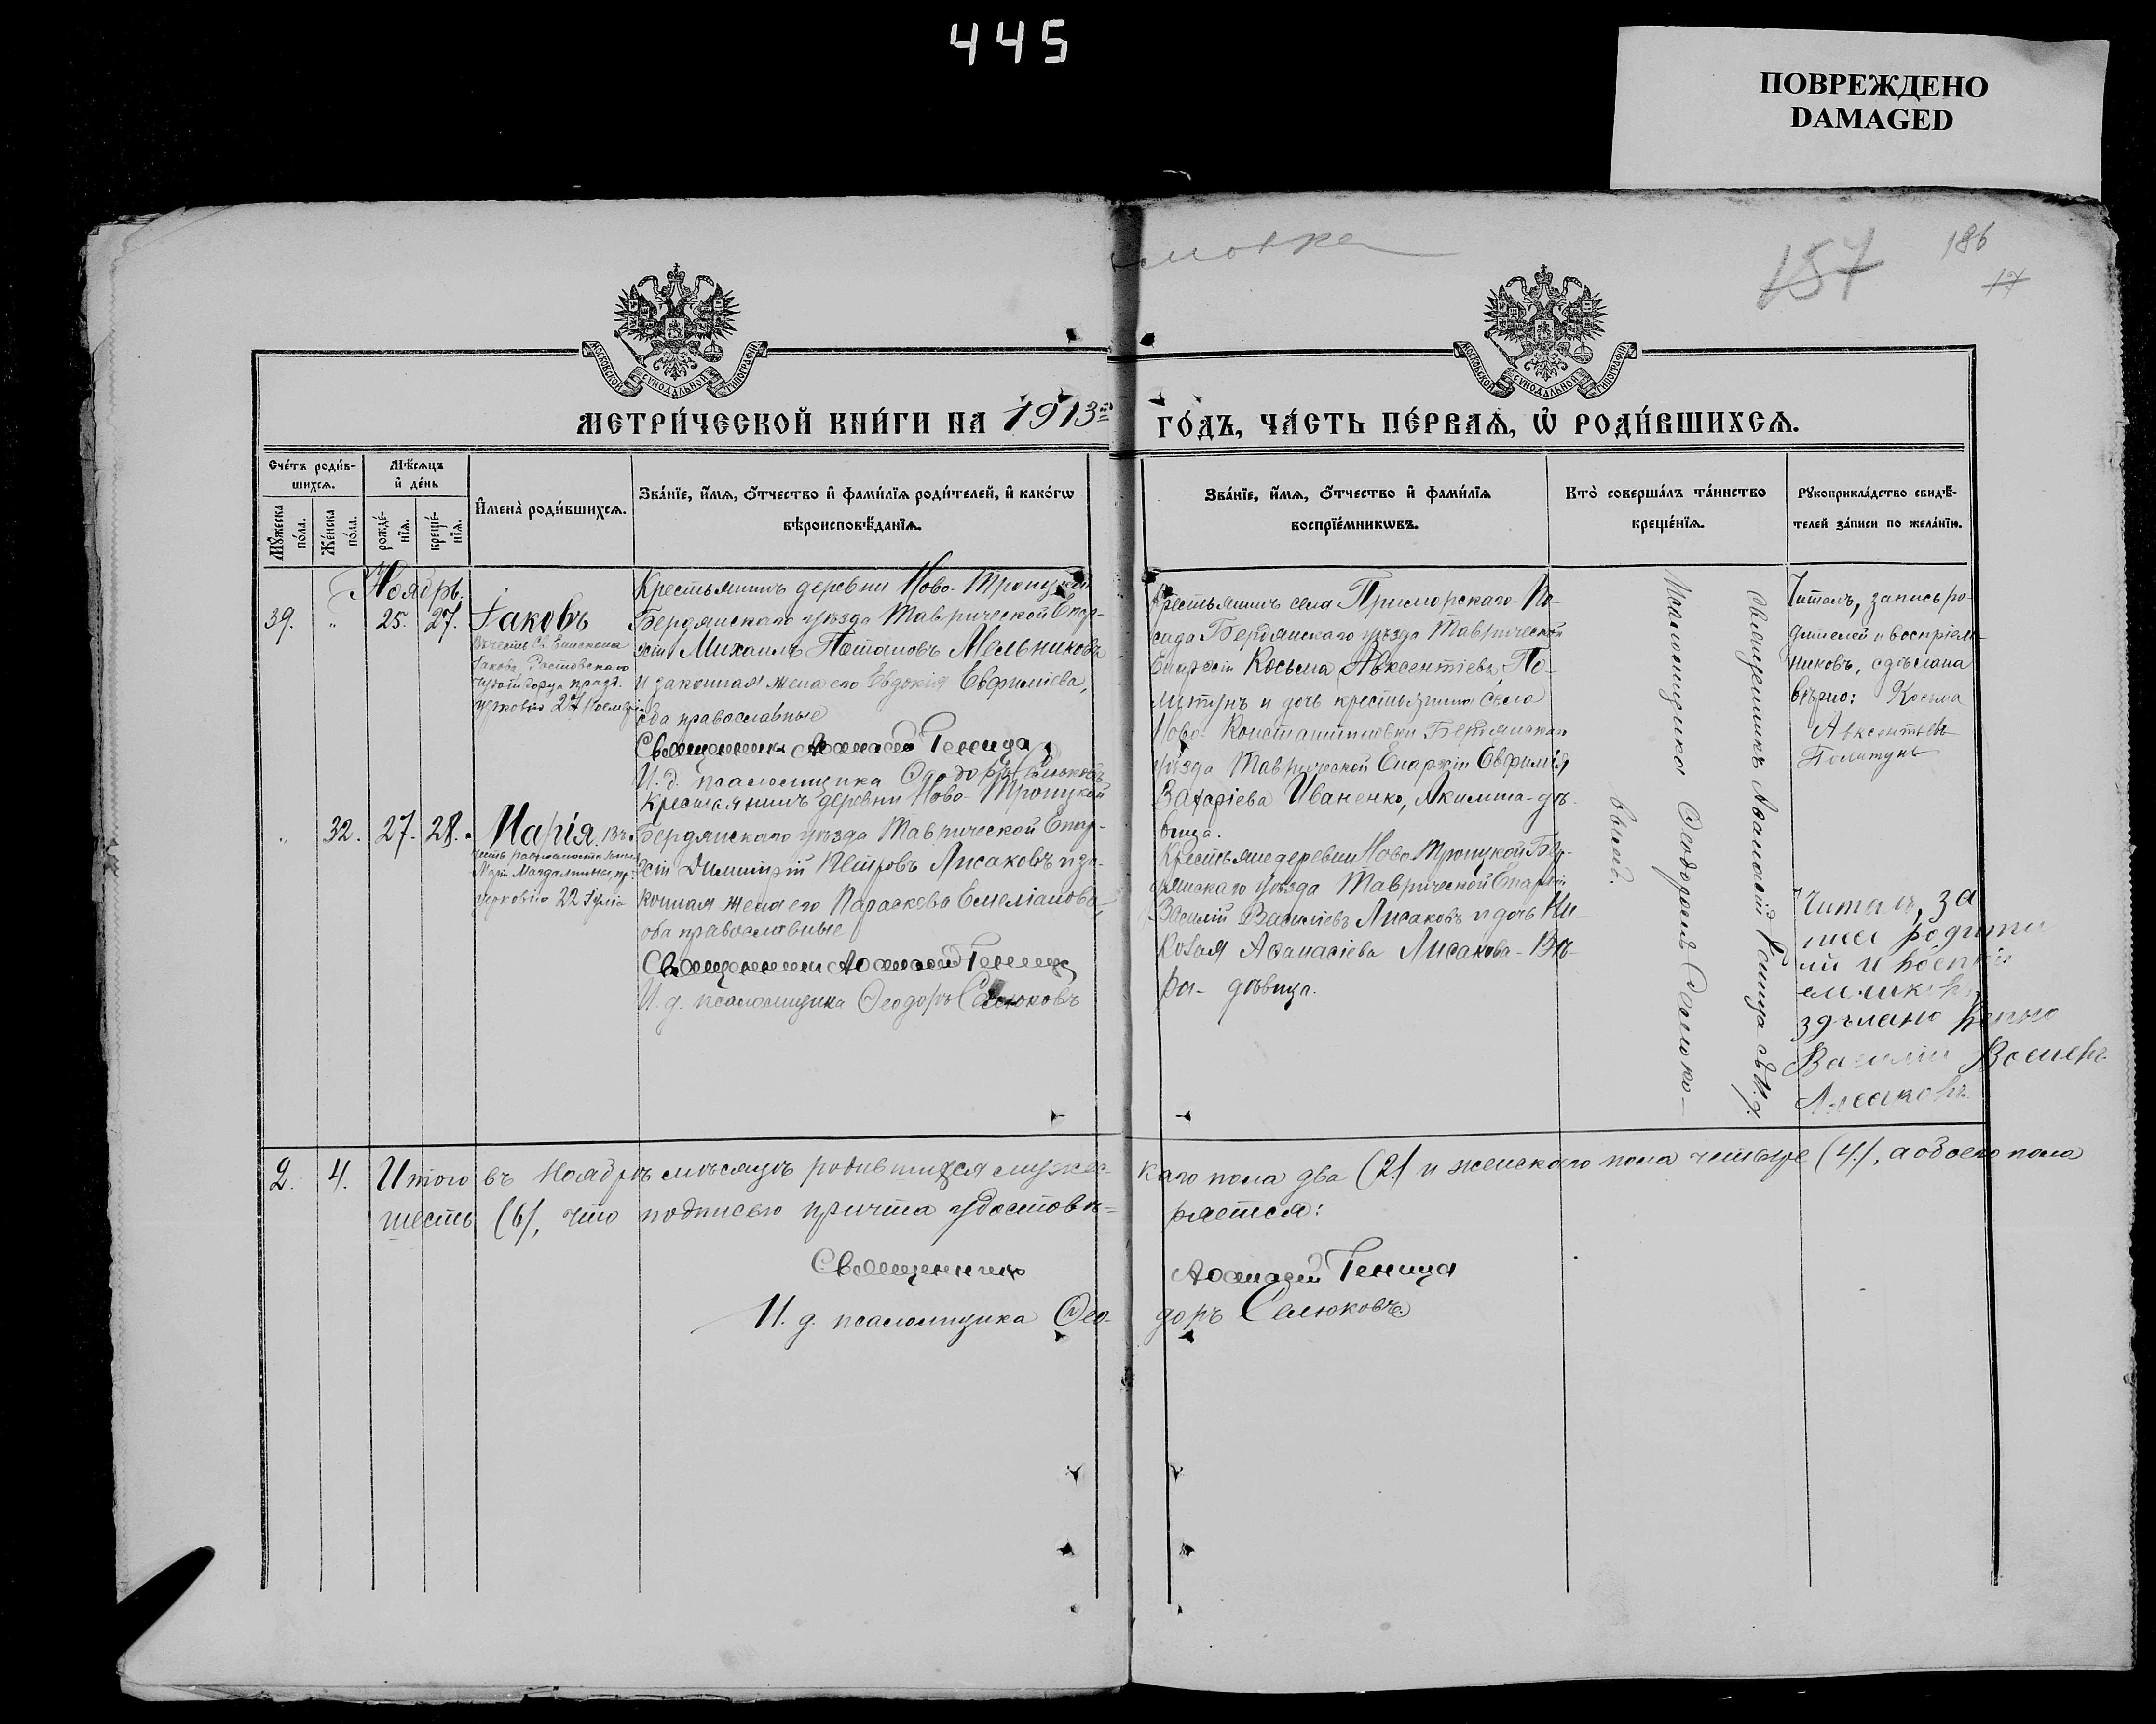 445
ПОВРЕЖДЕНО
DAMAGED
157
186
17
МОСКОВСКОЙ СѴНОДАЛЬНОЙ ТИПОГРАФІИ
МОСКОВСКОЙ СѴНОДАЛЬНОЙ ТИПОГРАФІИ
МЕТРИ́ЧЕСКОЙ КНИ́ГИ НА 1913й ГО́ДЪ, ЧА́СТЬ ПЕ́РВАѦ, Ѽ РОДИ́ВШИХСѦ.
Сче́тъ роди́в-
шихсѧ.
Мѣ́сѧцъ
и҆ де́нь
Мꙋ́жеска
по́ла.
Же́нска
по́ла.
рожде́-
нїѧ.
креще́-
нїѧ.
И҆мена̀ роди́вшихсѧ.
Зва́нїе, и҆́мѧ, ѻ҆́тчество и҆ фами́лїѧ роди́телей, и҆ како́гѡ
вѣроисповѣ́данїѧ.
Зва́нїе, и҆́мѧ, ѻ҆́тчество и҆ фами́лїѧ
воспрїе́мникѡвъ.
Кто̀ соверша́лъ та́инство
креще́нїѧ.
Рꙋкоприкла́дство свидѣ́-
телей за́писи по жела́нїю.
Ноябрь.
39. " 25. 27. Іаковъ
Въ честь Св. Епископа
Іакова Ростовскаго
чудотворца празд.
церковію 27 Ноября
Крестьянинъ деревни Ново-Троицкой
Бердянскаго уѣзда Таврической Епар-
хіи Михаилъ Потаповъ Мельниковъ
и законная жена его Евдокія Евфиміева,
оба православные
Священникъ Аѳанасій Геница
И. д. псаломщика Ѳеодоръ Селюковъ
Крестьянинъ села Приморскаго-По-
сада Бердянскаго уѣзда Таврической
Епархіи Косьма Авксентіевъ По-
литунъ и дочь крестьянина села
Ново-Константиновки Бердянскаго
уѣзда Таврической Епархіи Евфимія
Захаріева Иваненко, Акилина-дѣ-
вица.
Священникъ Аѳанасій Геница съ И. д.
Псаломщика Ѳеодоромъ Селюко-
вымъ.
Читалъ, запись ро-
дителей и воспріем-
никовъ, сдѣлана
вѣрно: Косма
Авксентьевъ
Политунъ
" 32. 27. 28. Марія. Въ
честь равноапостольной
Маріи Магдалины, пр.
церковію 22 Іюля
Крестьянинъ деревни Ново-Троицкой
Бердянскаго уѣзда Таврической Епар-
хіи Димитрій Петровъ Лисаковъ и за-
конная жена его Параскева Емеліанова,
оба православные
Священникъ Аѳанасій Геница
И. д. псаломщика Ѳеодоръ Селюковъ
Крестьяне деревни Ново-Троицкой Бер-
дянскаго уѣзда Таврической Епархіи
Василій Василіевъ Лисаковъ и дочь Ни-
колая Аѳанасіева Лисакова-Вѣ-
ра-дѣвица.
Читалъ, за
пись родите
лей и воспрі
емниковъ
здѣлано верно
Василій Васильевъ
Лисаковъ.
2. 4. Итого въ Ноябрѣ мѣсяцѣ родившихся мужес- каго пола два (2) и женскаго пола четыре (4), а обоего пола
шесть (6), что подписью причта удостовѣ- ряется:
Священникъ Аѳанасій Геница
И. д. псаломщика Ѳео- доръ Селюковъ.